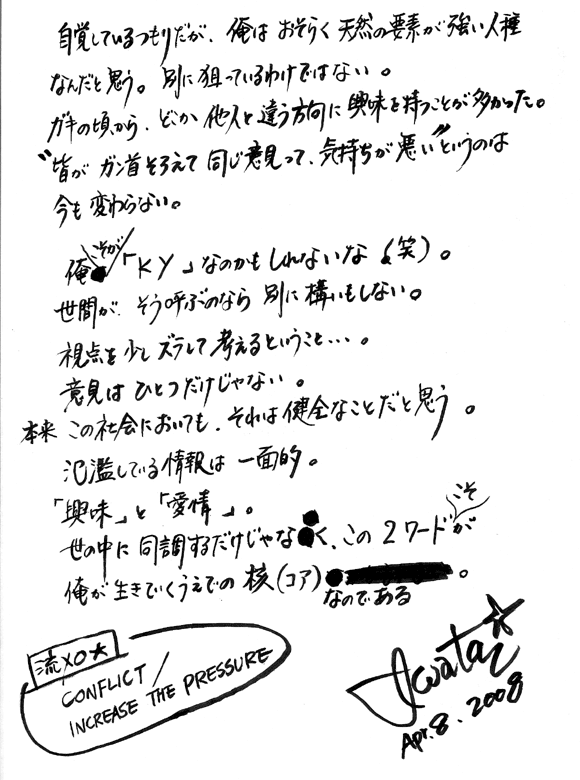 自覚しているつもりだが、俺は おそらく 天然の要素が 強い人種
なんだと思う。別に狙っているわけではない。
ガキの頃から、どこか 他人と違う方向に 興味を持つことが多かった。
“皆が ガン首そろえて 同じ意見って、気持ちが悪い”というのは
今も変わらない。
俺こそが「KY」なのかもしれないな(笑)。
世間が、そう呼ぶのなら 別に構いもしない。
視点を少しズラして考えるということ…。
意見は ひとつだけじゃない。
本来 この社会においても、それは健全なことだと思う。
氾濫している情報は 一面的。
「興味」と「愛情」。
世の中に 同調するだけじゃなく、この2ワードこそが
俺が生きていくうえでの 核(コア)なのである。
流XO★
CONFLICT/
INCREASE THE PRESSURE
Apr. 8. 2008